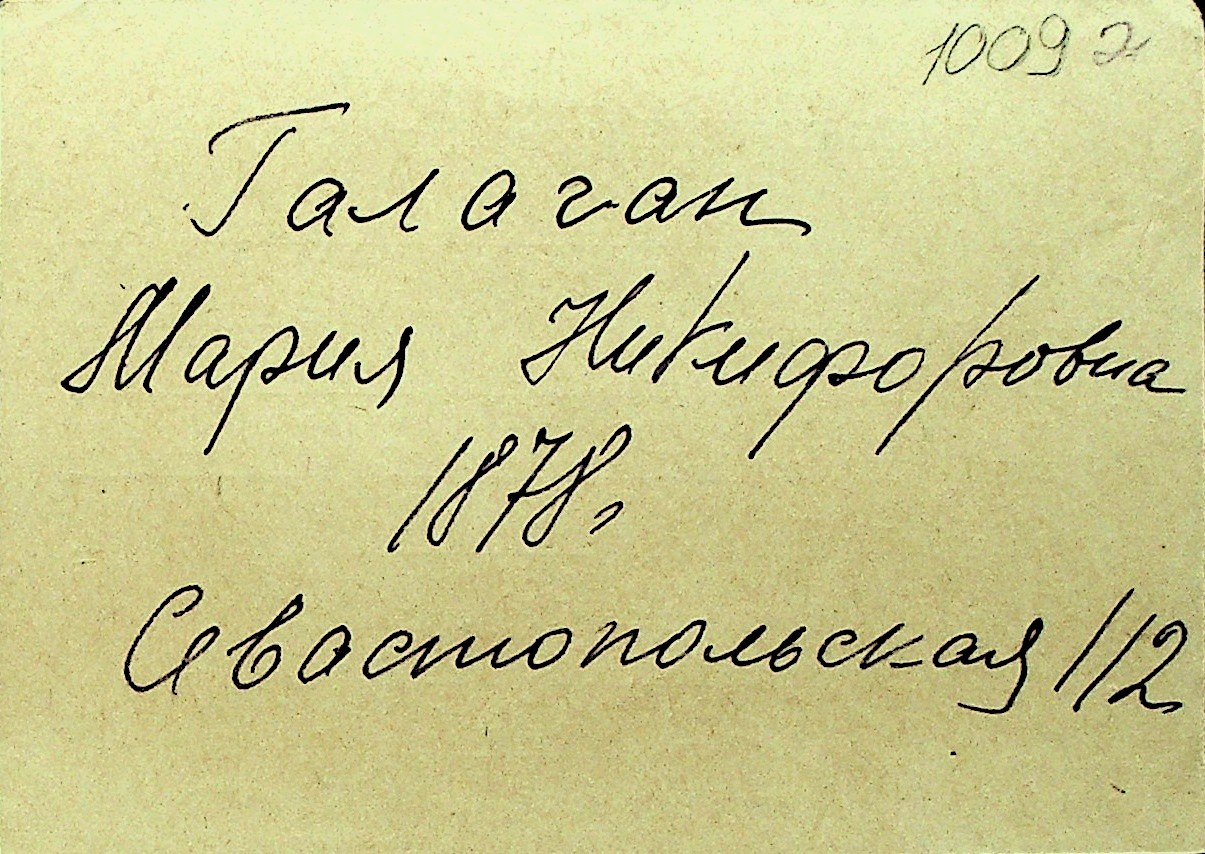 1009 г
Галаган
Мария Никифоровна
1878,
Севастопольская 112